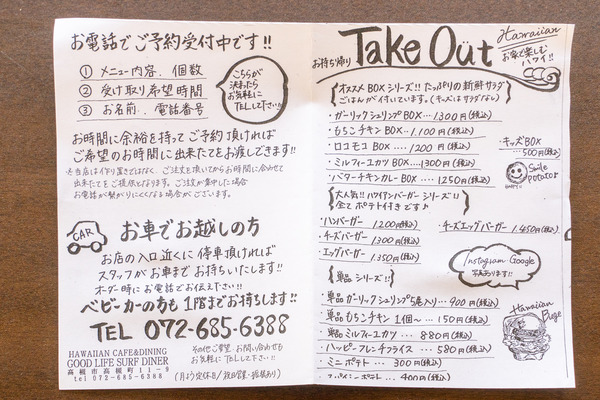 お電話でご予約受付中です!!
① メニュー内容、個数
② 受け取り希望時間
③ お名前、電話番号
こちらが
決まったら
お気軽に
TELして下さい♪
お時間に余裕を持ってご予約頂ければ
ご希望のお時間に出来たてをお渡しできます!!
※当店は作り置きではなく、ご注文を頂いてからお時間に合わせて
出来たてをご提供となります。ご注文が集中した場合
お電話が繋がりにくくなる場合がございます。
CAR
お車でお越しの方
お店の入口近くに停車頂ければ
スタッフがお車までお持ちいたします!!
オーダー時にお電話でお伝え下さい!!
ベビーカーの方も1階までお持ちします!!
TEL 072-685-6388
HAWAIIAN CAFE&DINING
GOOD LIFE SURF DINER
高槻市高槻町11-9
tel 072-685-6388
その他ご希望、お問い合わせも
お気軽にTEL下さい!!
(月曜定休日/祝日営業・振替あり)
お持ち帰り Take Out
Hawaiian
お家で楽しむ
ハワイ!!
オススメBOXシリーズ!! たっぷりの新鮮サラダ
ごはんが付いています。(キッズはサラダなし)
・ガーリックシュリンプBOX...1300円(税込)
・もちこチキンBOX...1,100円(税込)
・ロコモコBOX....1200円(税込)
・ミルフィーユカツBOX...1300円(税込)
・バターチキンカレーBOX...1250円(税込)
・キッズBOX
...500円(税込)
Smile
potato♪
HAPPY!!
大人気!!ハワイアンバーガーシリーズ!!
全てポテト付きです♪
・ハンバーガー 1,200円(税込)
・チーズバーガー 1,300円(税込)
・エッグバーガー 1,350円(税込)
・チーズエッグバーガー 1,450円(税込)
Instagram Google
写真あります!!
単品シリーズ!!
・単品ガーリックシュリンプ5尾入り...900円(税込)
・単品もちこチキン1個〜...150円(税込)
・単品ミルフィーユカツ...880円(税込)
・ハッピーフレンチフライス...580円(税込)
・ミニポテト....300円(税込)
ポテト...400円(税込)
Hawaiian